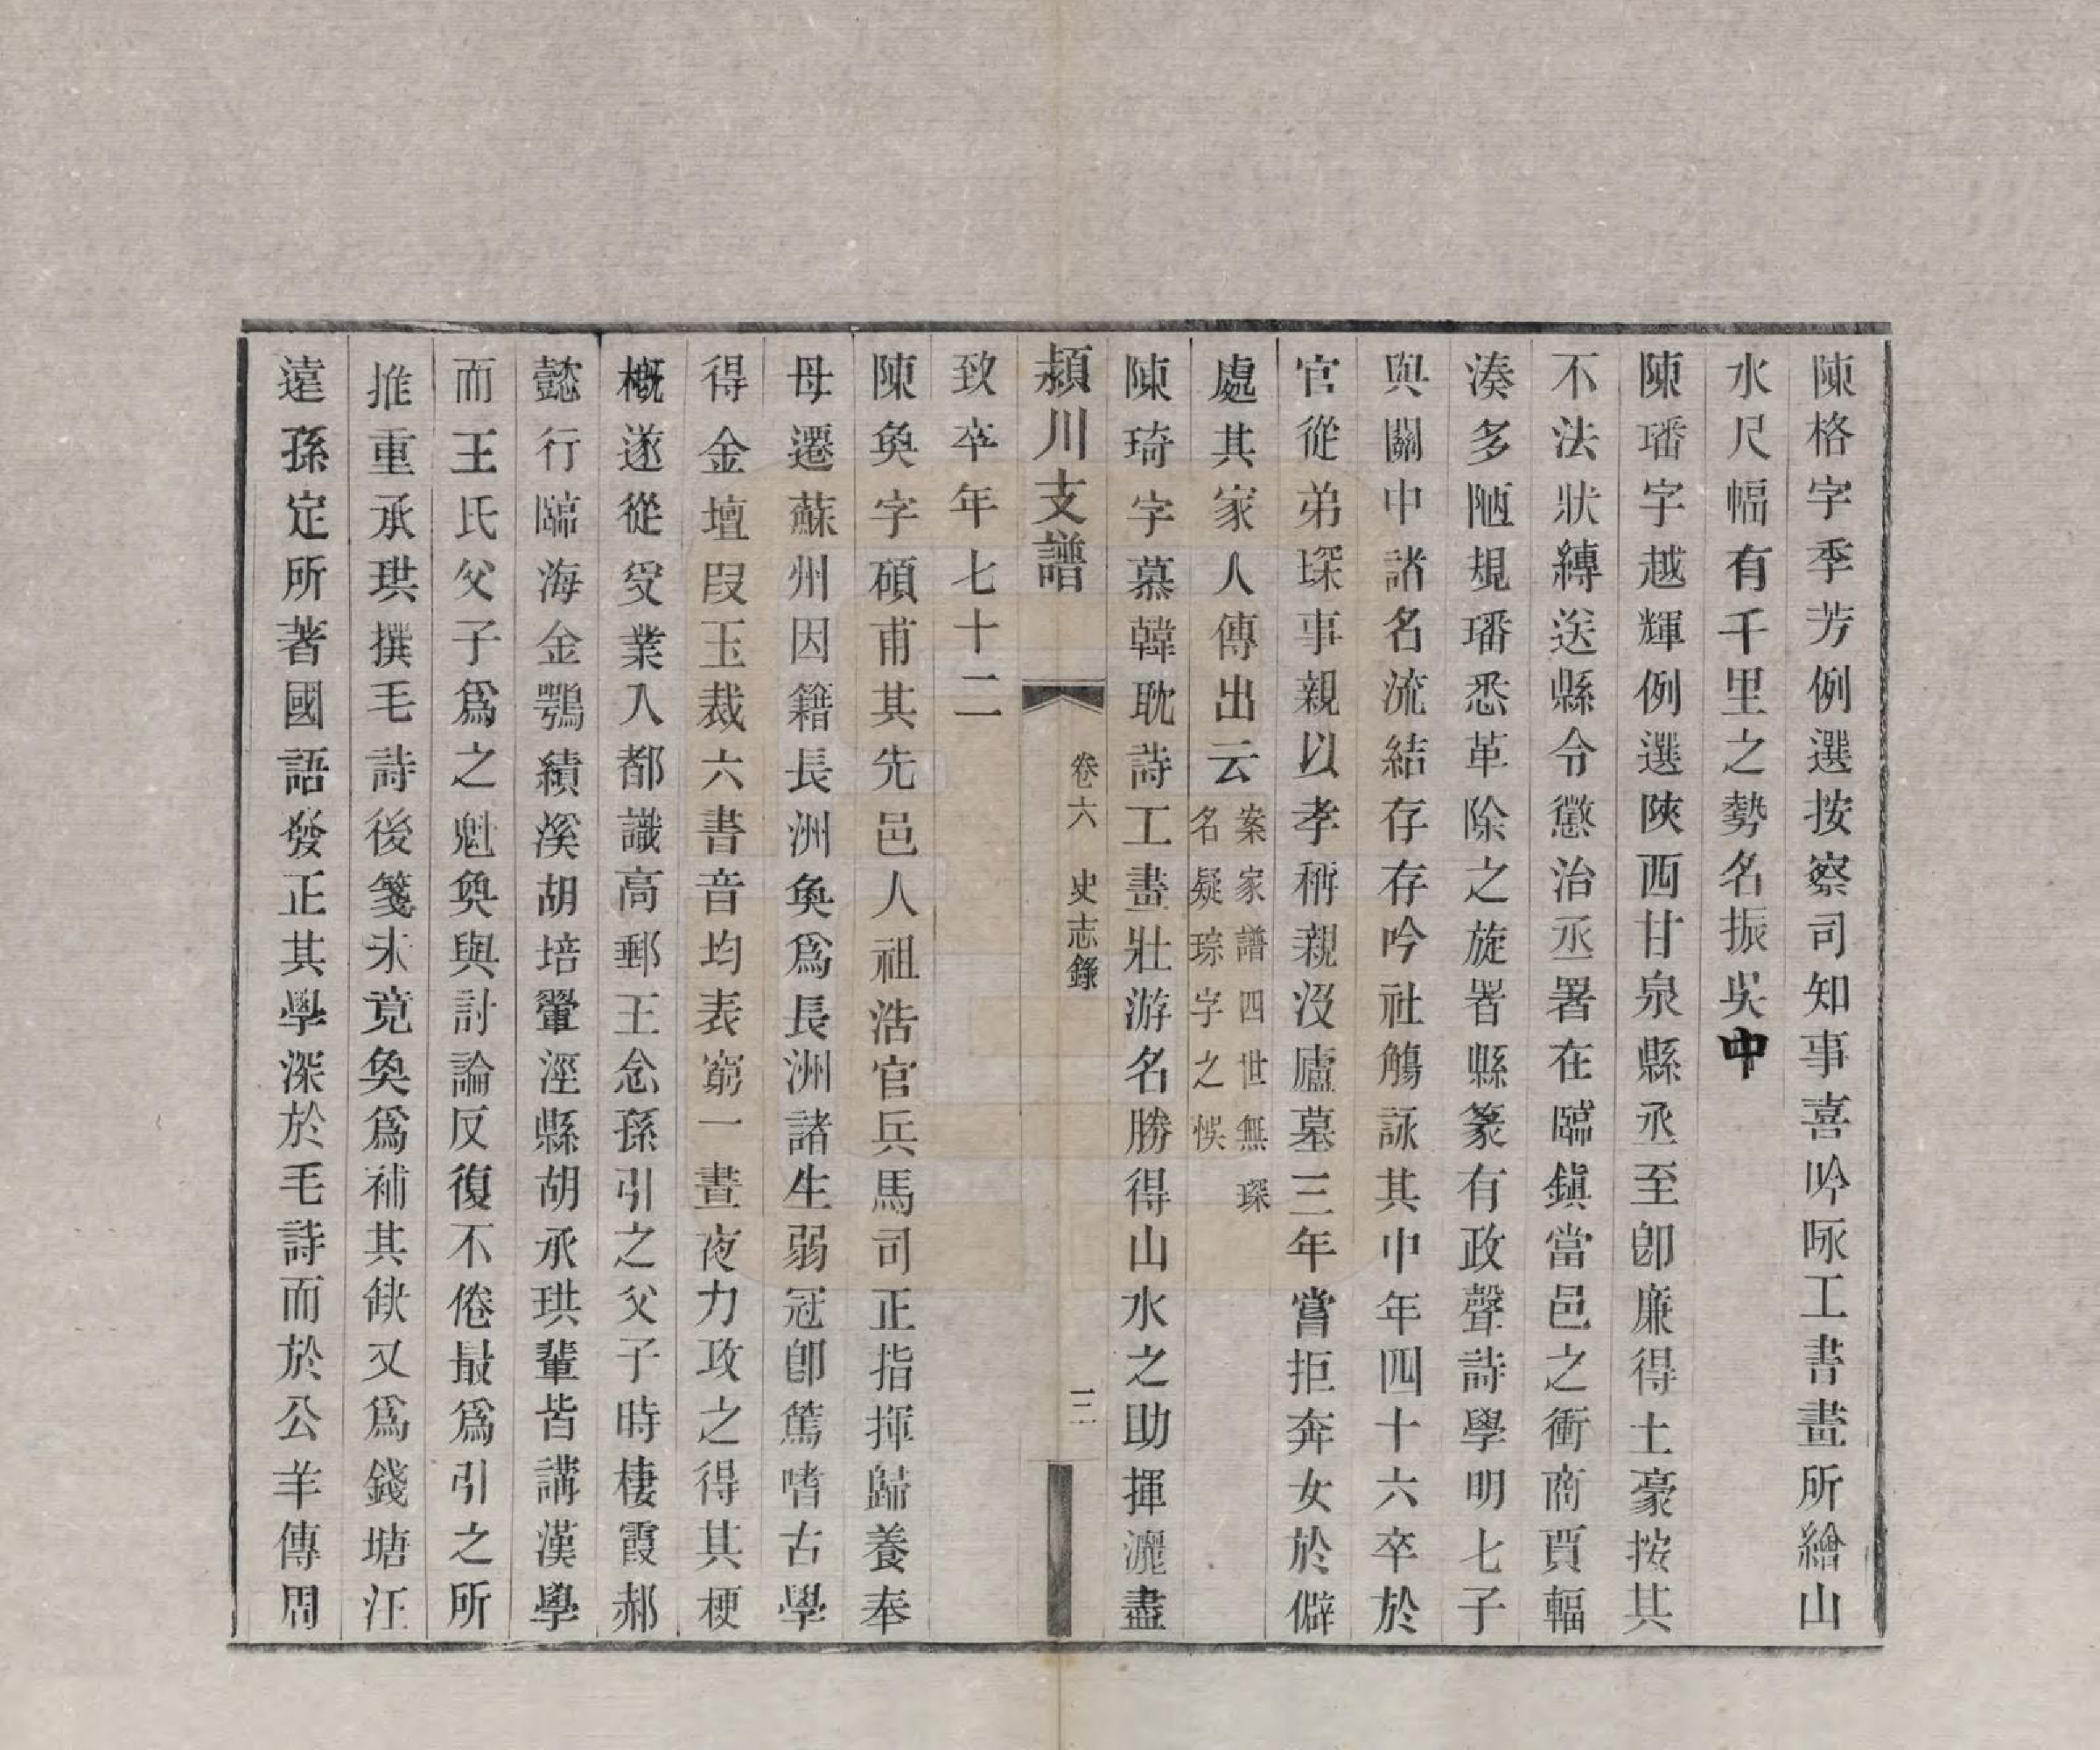 陳格字季芳例選按察司知事喜吟咏工書畫所繪山
水尺幅有千里之勢名振吳中
陳璠字越輝例選陝西甘泉縣丞至卽廉得土豪按其
不法狀縛送縣令懲治丞署在臨鎭當邑之衝商賈輻
湊多陋規璠悉革除之旋署縣篆有政聲詩學明七子
與關中諸名流結存存吟社觴詠其中年四十六卒於
官從弟琛事親以孝稱親沒廬墓三年嘗拒奔女於僻
處其家人傳出云案家譜四世無琛
名疑琮字之悞
陳琦字慕韓耽詩工畫壯游名勝得山水之助揮灑盡
潁川支譜 卷六 史志錄 二
致卒年七十二
陳奐字碩甫其先邑人祖浩官兵馬司正指揮歸養奉
母遷蘇州因籍長洲奐爲長洲諸生弱冠卽篤嗜古學
得金壇段玉裁六書音均表窮一晝夜力攻之得其梗
槪遂從受業入都識高郵王念孫引之父子時棲霞郝
懿行臨海金鶚績溪胡培翬涇縣胡承珙輩皆講漢學
而王氏父子爲之魁奐與討論反復不倦最爲引之所
推重承珙撰毛詩後箋未竟奐爲補其缺又爲錢塘汪
遠孫定所著國語發正其學深於毛詩而於公羊傳周